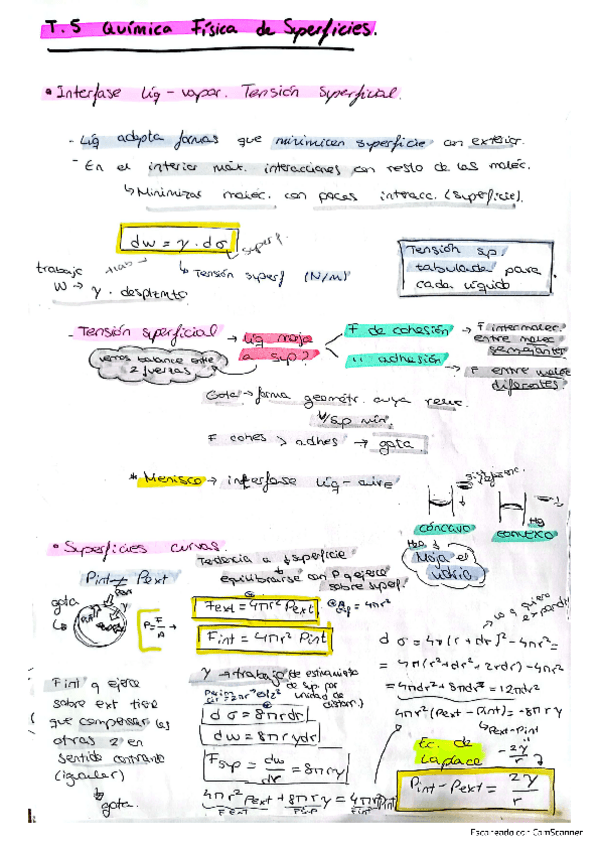 T.5 Química Física de Superficies.
• Interfase líq-vapor. Tensión superficial.
- Líq adopta formas que minimicen superficie con exterior.
- En el interior máx. interacciones con resto de las moléc.
↳ Minimizar moléc. con pocas interacc. (superficie).
dw = γ · dσ
superf.
trabajo
W → γ · desplzmto
↳ Tensión superf (N/m)
Tensión sp.
tabulada para
cada líquido
- Tensión superficial → líq moja
a sup?
F de cohesión → F intermolec.
entre molec
semejantes
" adhesión → F entre moléc
diferentes
vemos balance entre
2 fuerzas
Gota → forma geométr. cuya relac.
V/sp mín.
F cohes > adhes → gota
* Menisco → interfase líq-aire
cóncavo
Hg
convexo
H2O
Moja el
vidrio
• Superficies curvas.
Pint ≠ Pext
gota
P = F/A →
Tendencia a ↓ superficie
equilibrarse con P q ejerce
sobre superf.
Fext = 4πr² Pext
= 4πr²
Fint = 4πr² Pint
Fint q ejerce
sobre ext tiene
que compensar las
otras 2 en
sentido contrario
(igualar)
↓
gota.
γ → trabajo de estiramiento
de sup. por
unidad de
distan.)
dσ = 8πrdr
dw = 8πrγdr
Fsup = dw/dr = 8πrγ
4πr² Pext + 8πrγ = 4πr² Pint
Fext Fsp Fint
dσ = 4π(r + dr)² - 4πr² =
= 4π(r² + dr² + 2rdr) - 4πr²
4πr² (Pext - Pint) = -8πrγ
↳ Pext - Pint
Ec. de
Laplace
-2γ/r
Pint - Pext = 2γ/r
Escaneado con CamScanner